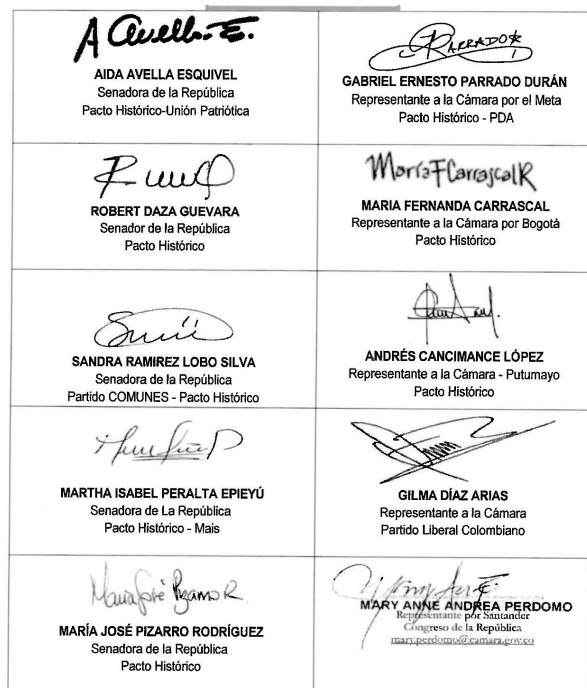 A Avella. E.
AIDA AVELLA ESQUIVEL
Senadora de la República
Pacto Histórico-Unión Patriótica
PARRADO
GABRIEL ERNESTO PARRADO DURÁN
Representante a la Cámara por el Meta
Pacto Histórico - PDA
ROBERT DAZA GUEVARA
Senador de la República
Pacto Histórico
María F Carrascal R
MARIA FERNANDA CARRASCAL
Representante a la Cámara por Bogotá
Pacto Histórico
SANDRA RAMIREZ LOBO SILVA
Senadora de la República
Partido COMUNES - Pacto Histórico
ANDRÉS CANCIMANCE LÓPEZ
Representante a la Cámara - Putumayo
Pacto Histórico
MARTHA ISABEL PERALTA EPIEYÚ
Senadora de La República
Pacto Histórico - Mais
GILMA DÍAZ ARIAS
Representante a la Cámara
Partido Liberal Colombiano
María José Pizarro R
MARÍA JOSÉ PIZARRO RODRÍGUEZ
Senadora de la República
Pacto Histórico
MARY ANNE ANDREA PERDOMO
Representante por Santander
Congreso de la República
mary.perdomo@camara.gov.co